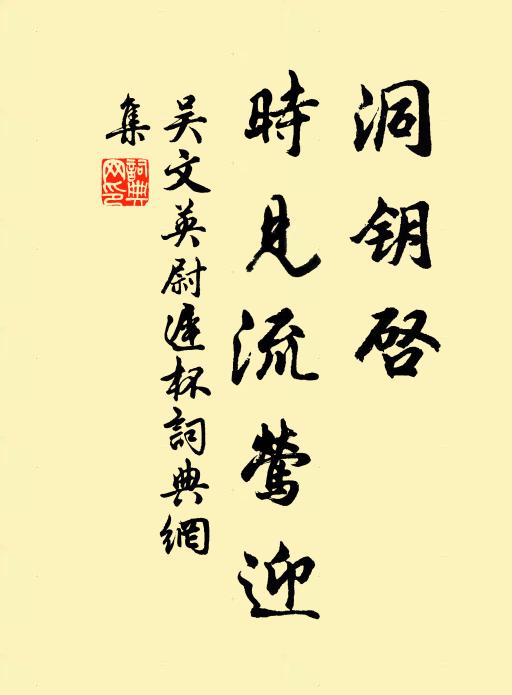 洞钥启
時見流莺迎
吴文英尉遲杯詞典網
集
詞典網印